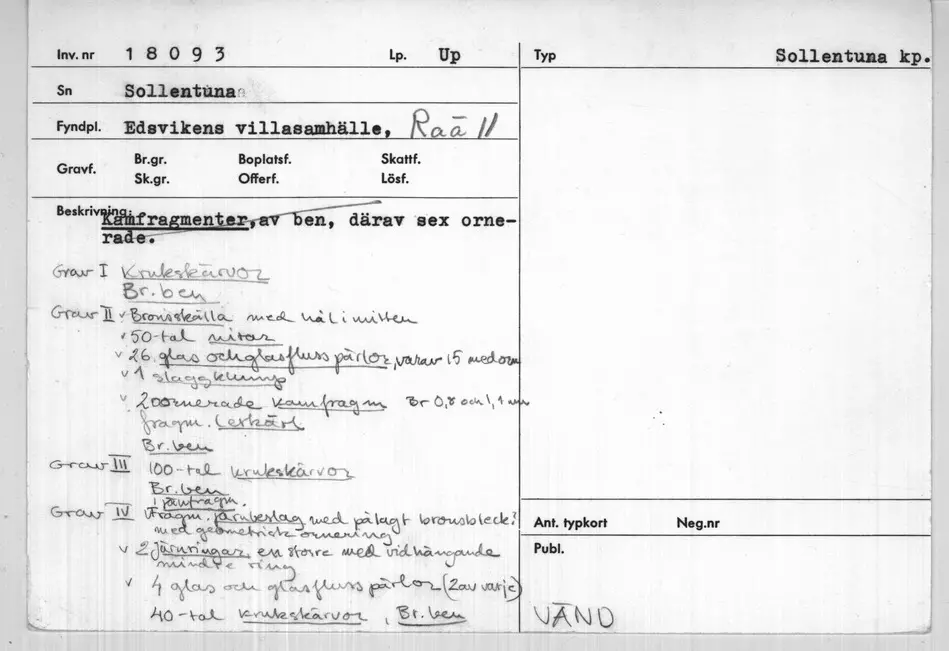 Inv. nr 18093 Lp. Up
Sn Sollentuna
Fyndpl. Edsvikens villasamhälle, Raä 11
Gravf. Br.gr. Boplatsf. Skattf.
Sk.gr. Offerf. Lösf.
Beskrivning:
Kamfragmenter, av ben, därav sex orne-
rade.
Grav I Krukskärvor
Br. ben
Grav II v Bronsskålla med hål i mitten
v 50-tal nitar
v 26 glas och glasfluss pärlor, varav 15 med orn
v 1 slaggklump
v 20 ornerade kamfragm Br 0,8 och 1,1 mm
fragm. lerkärl
Br. ben
Grav III 100-tal krukskärvor
Br. ben
1 järnfragm.
Grav IV v Fragm. järnbeslag med pålagt bronsbleck?
med geometrisk ornering
v 2 järnringar, en större med vidhängande
mindre ring
v 4 glas och glasfluss pärlor (2 av varje)
40-tal krukskärvor, Br. ben
Typ Sollentuna kp.
Ant. typkort Neg.nr
Publ.
VÄND